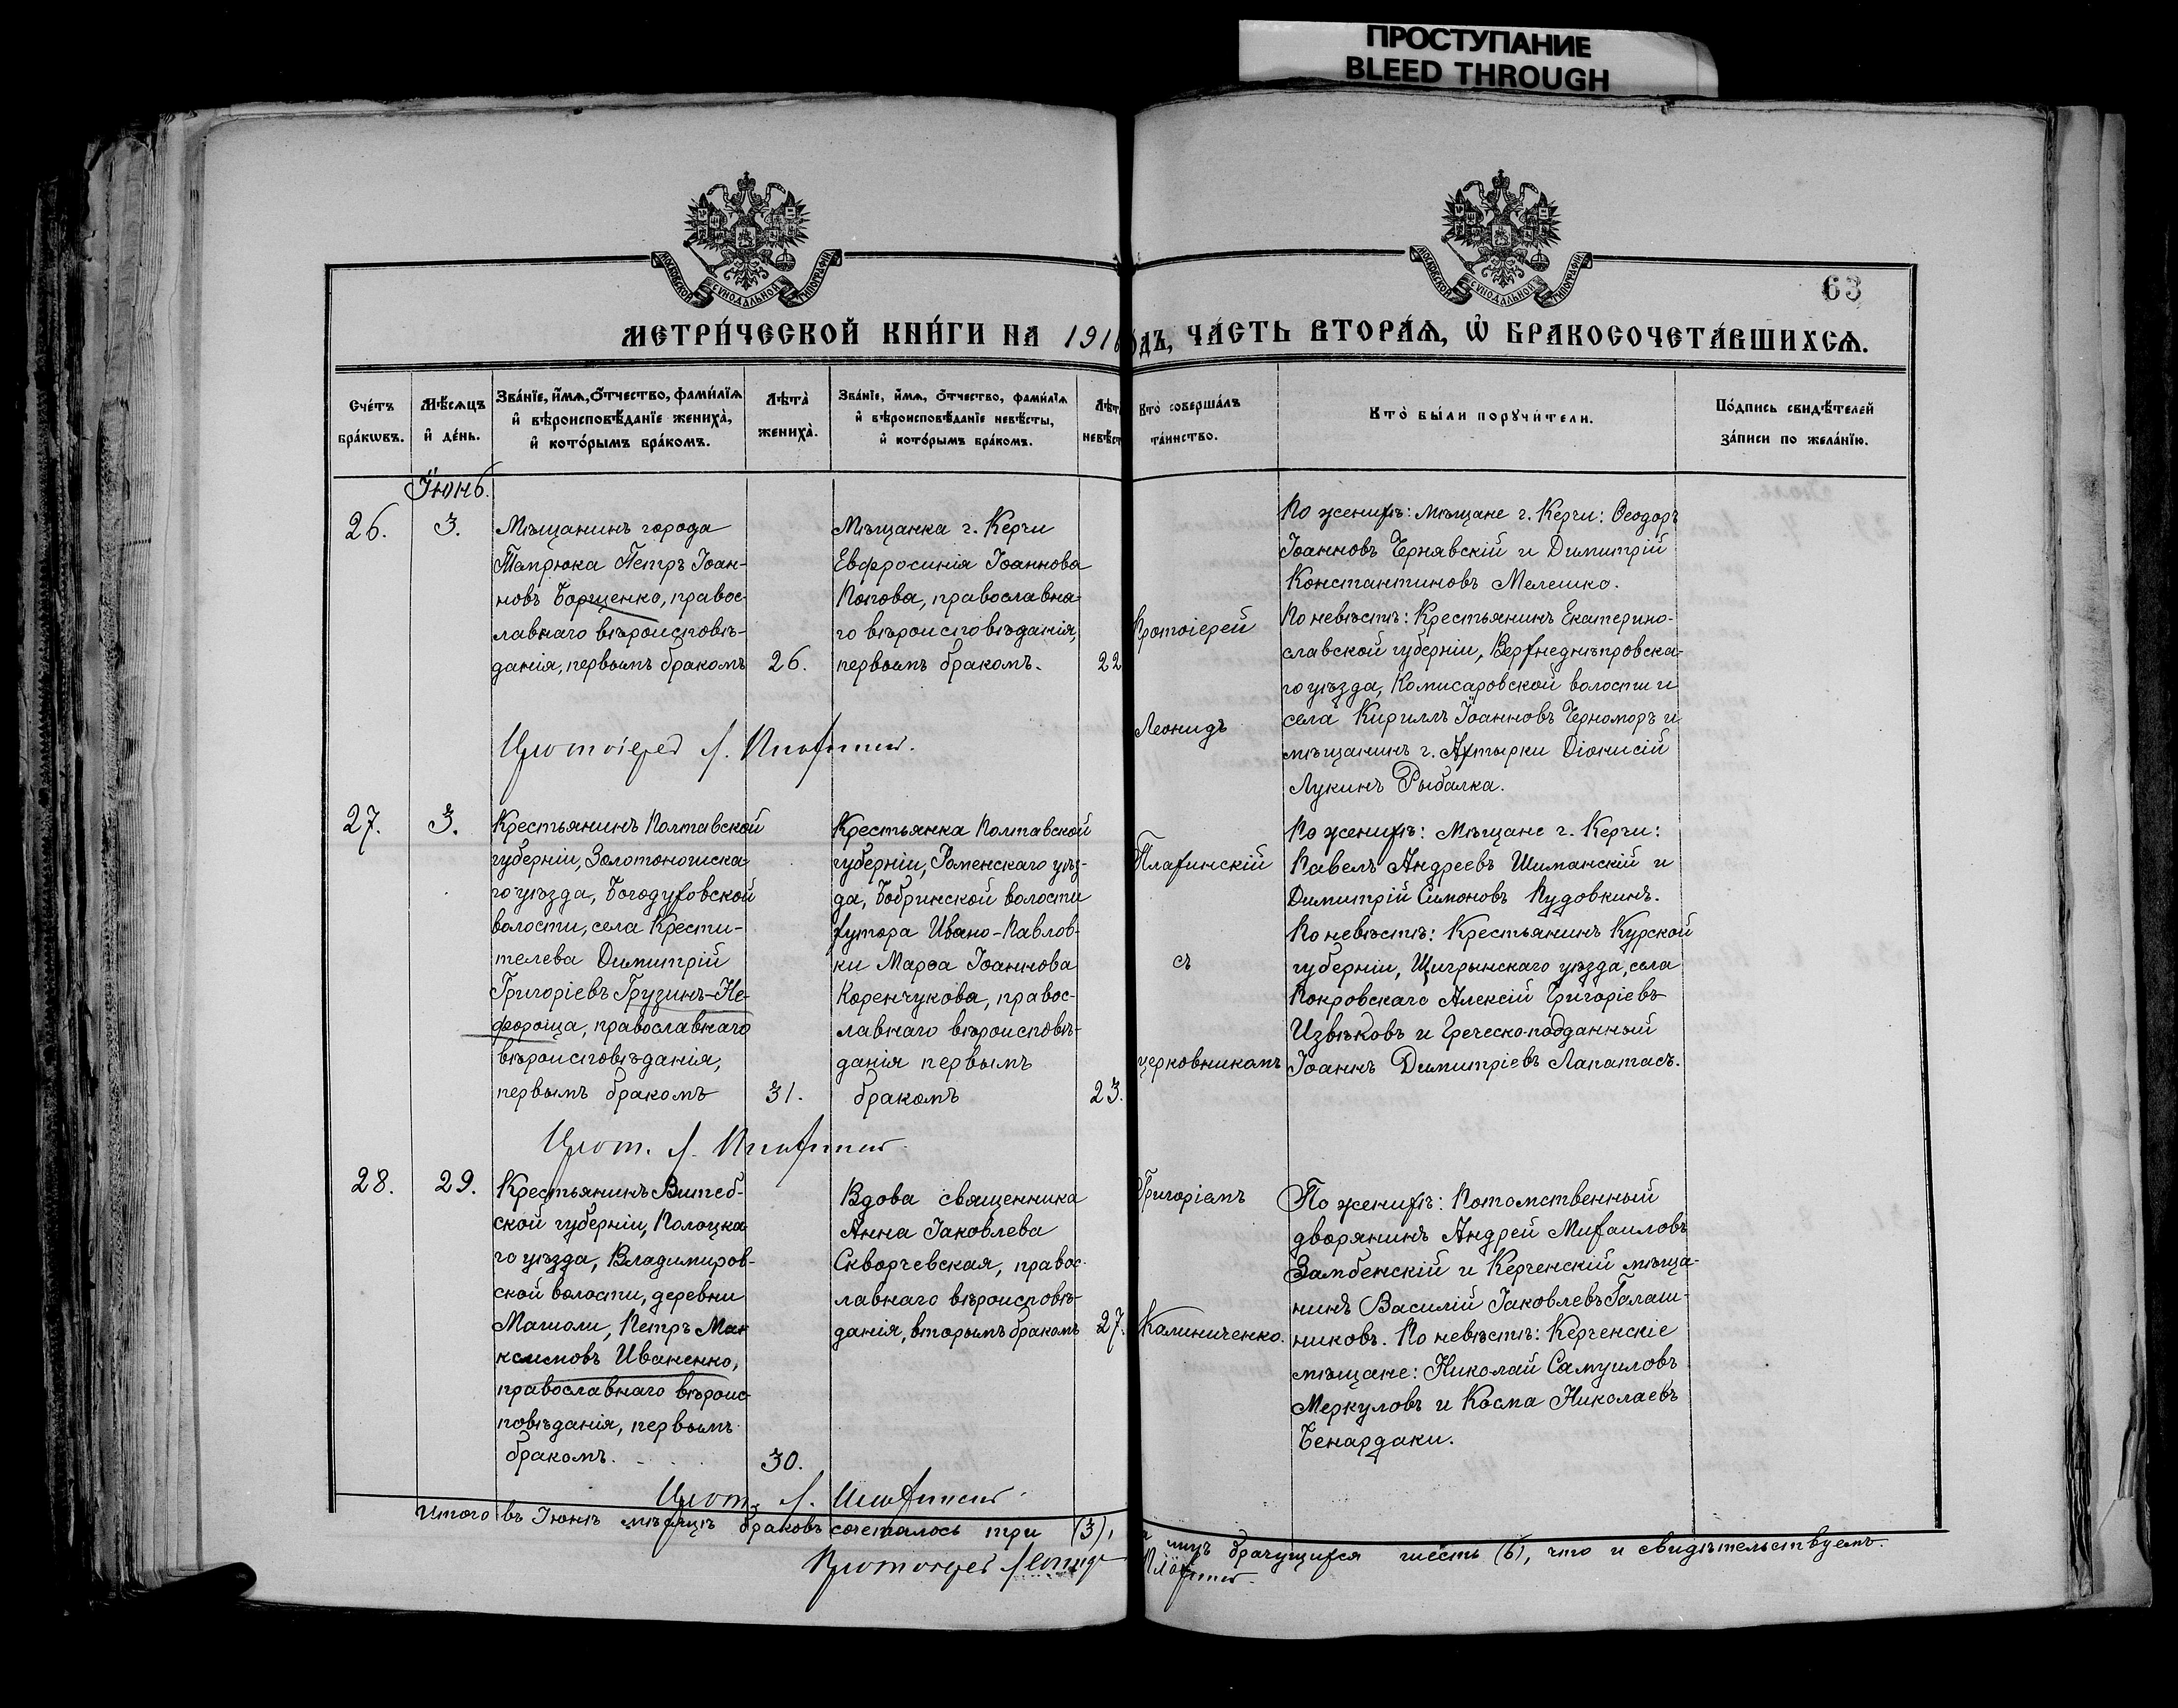 ПРОСТУПАНИЕ
BLEED THROUGH
МОСКОВСКОЙ СѴНОДАЛЬНОЙ ТИПОГРАФІИ
МОСКОВСКОЙ СѴНОДАЛЬНОЙ ТИПОГРАФІИ
63
МЕТРИ́ЧЕСКОЙ КНИ́ГИ НА 1916 ДЪ, ЧА́СТЬ ВТОРА́Ѧ, Ѽ БРАКОСОЧЕТА́ВШИХСѦ.
Сче́тъ
бра́кѡвъ.
Мѣ́сѧцъ
и҆ де́нь.
Зва́нїе, и҆́мѧ, ѻ҆́тчество, фами́лїѧ
и҆ вѣроисповѣ́данїе жениха̀,
и҆ кото́рымъ бра́комъ.
Лѣта̀
жениха̀.
Зва́нїе, и҆́мѧ, ѻ҆́тчество, фами́лїѧ
и҆ вѣроисповѣ́данїе невѣ́сты,
и҆ кото́рымъ бра́комъ.
Лѣт
невѣст
Кто̀ соверша́лъ
та́инство.
Кто̀ бы́ли порꙋчи́тели.
По́дпись свидѣ́телей
за́писи по жела́нїю.
Іюнь.
26.
3.
Мѣщанинъ города
Темрюка Петръ Іоан-
новъ Борщенко, правос-
лавнаго вѣроисповѣ-
данія, первымъ бракомъ
26.
Мѣщанка г. Керчи
Евфросинія Іоаннова
Попова, православна-
го вѣроисповѣданія,
первымъ бракомъ.
22
Протоіерей
Леонидъ
По женихѣ: мѣщане г. Керчи: Ѳеодоръ
Іоанновъ Чернявскій и Димитрій
Константиновъ Мелешко.
По невѣстѣ: Крестьянинъ Екатерино-
славской губерніи, Верхнеднѣпровска-
го уѣзда, Комисаровской волости и
села Кириллъ Іоанновъ Черноморъ и
мѣщанинъ г. Ахтырки Діонисій
Лукинъ Рыбалка.
Протоіерей Л. Плафинскій.
27.
3.
Крестьянинъ Полтавской
губерніи, Золотоношска-
го уѣзда, Богодуховской
волости, села Крести-
телева Димитрій
Григоріевъ Грузинъ-Не-
фороща, православнаго
вѣроисповѣданія,
первымъ бракомъ
31.
Крестьянка Полтавской
губерніи, Роменскаго уѣз-
да, Бобринской волости
хутора Ивано-Павлов-
ки Марѳа Іоаннова
Коренчукова, правос-
лавнаго вѣроисповѣ-
данія первымъ
бракомъ
23.
Плафинскій
съ
церковникомъ
По женихѣ: Мѣщане г. Керчи:
Павелъ Андреевъ Шиманскій и
Димитрій Симоновъ Пудовкинъ.
По невѣстѣ: Крестьянинъ Курской
губерніи, Щигрынскаго уѣзда, села
Покровскаго Алексій Григоріевъ
Извѣковъ и Греческо-подданный
Іоаннъ Димитріевъ Лапатасъ.
Прот. Л. Плафинскій
28.
29.
Крестьянинъ Витеб-
ской губерніи, Полоцка-
го уѣзда, Владимиров-
ской волости, деревни
Петръ Мак
симовъ Иваненко,
православнаго вѣроис-
повѣданія, первымъ
бракомъ.
30.
Вдова священника
Анна Іаковлева
Скворчевская, правос-
лавнаго вѣроисповѣ-
данія, вторымъ бракомъ
27.
Григоріемъ
Калиниченко.
По женихѣ: Потомственный
дворянинъ Андрей Михаиловъ
Замбенскій и Керченскій мѣща-
нинъ Василій Іаковлевъ Галаш-
никовъ. По невѣстѣ: Керченскіе
мѣщане: Николай Самуиловъ
Меркуловъ и Косма Николаевъ
Бенардаки.
Прот. Л. Плафинскій
Итого въ Іюнѣ мѣсяцѣ браковъ сочеталось три (3), лицъ брачущихся шесть (6), что и свидѣтельствуемъ.
Протоіерей Леонидъ Плафинскій